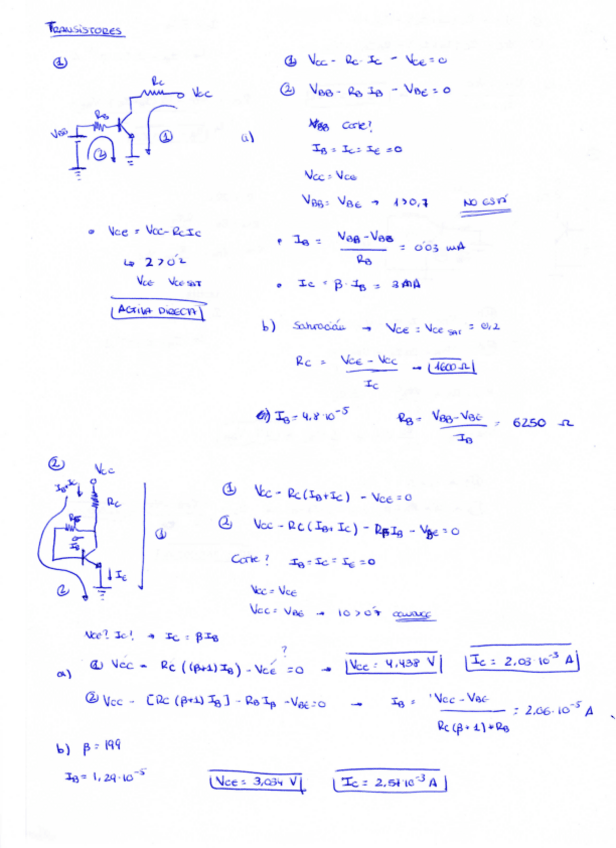 TRANSISTORES
①
Rc
Vcc
RB
①
②
① Vcc - Rc · Ic - VCE = 0
② VBB - RB IB - VBE = 0
a)
Corte?
IB = Ic = IE = 0
Vcc = VCE
VBB = VBE → 1 > 0,7 NO ESTÁ
• VCE = Vcc - Rc Ic
↳ 2 > 0'2
VCE VCE SAT
ACTIVA DIRECTA
• IB = VBB - VBB / RB = 0'03 mA
• Ic = β · IB = 3 mA
b) Saturación → VCE = VCE SAT = 0,2
Rc = VCE - Vcc / Ic → 1600 Ω
IB = 4,8 · 10⁻⁵ RB = VBB - VBE / IB = 6250 Ω
②
Vcc
IB+Ic
Rc
①
↓ IE
②
① Vcc - Rc (IB + Ic) - VCE = 0
② Vcc - Rc (IB + Ic) - RB IB - VBE = 0
Corte? IB = Ic = IE = 0
Vcc = VCE
Vcc = VBE → 10 > 0'7
VCE? Ic? → Ic = β IB
?
a) ① Vcc - Rc ((β+1) IB) - VCE = 0 → VCE = 4,438 V Ic = 2,03 · 10⁻³ A
② Vcc - [Rc (β+1) IB] - RB IB - VBE = 0 → IB = Vcc - VBE / Rc (β+1) + RB = 2,06 · 10⁻⁵ A
b) β = 199
IB = 1,29 · 10⁻⁵ VCE = 3,034 V Ic = 2,57 · 10⁻³ A